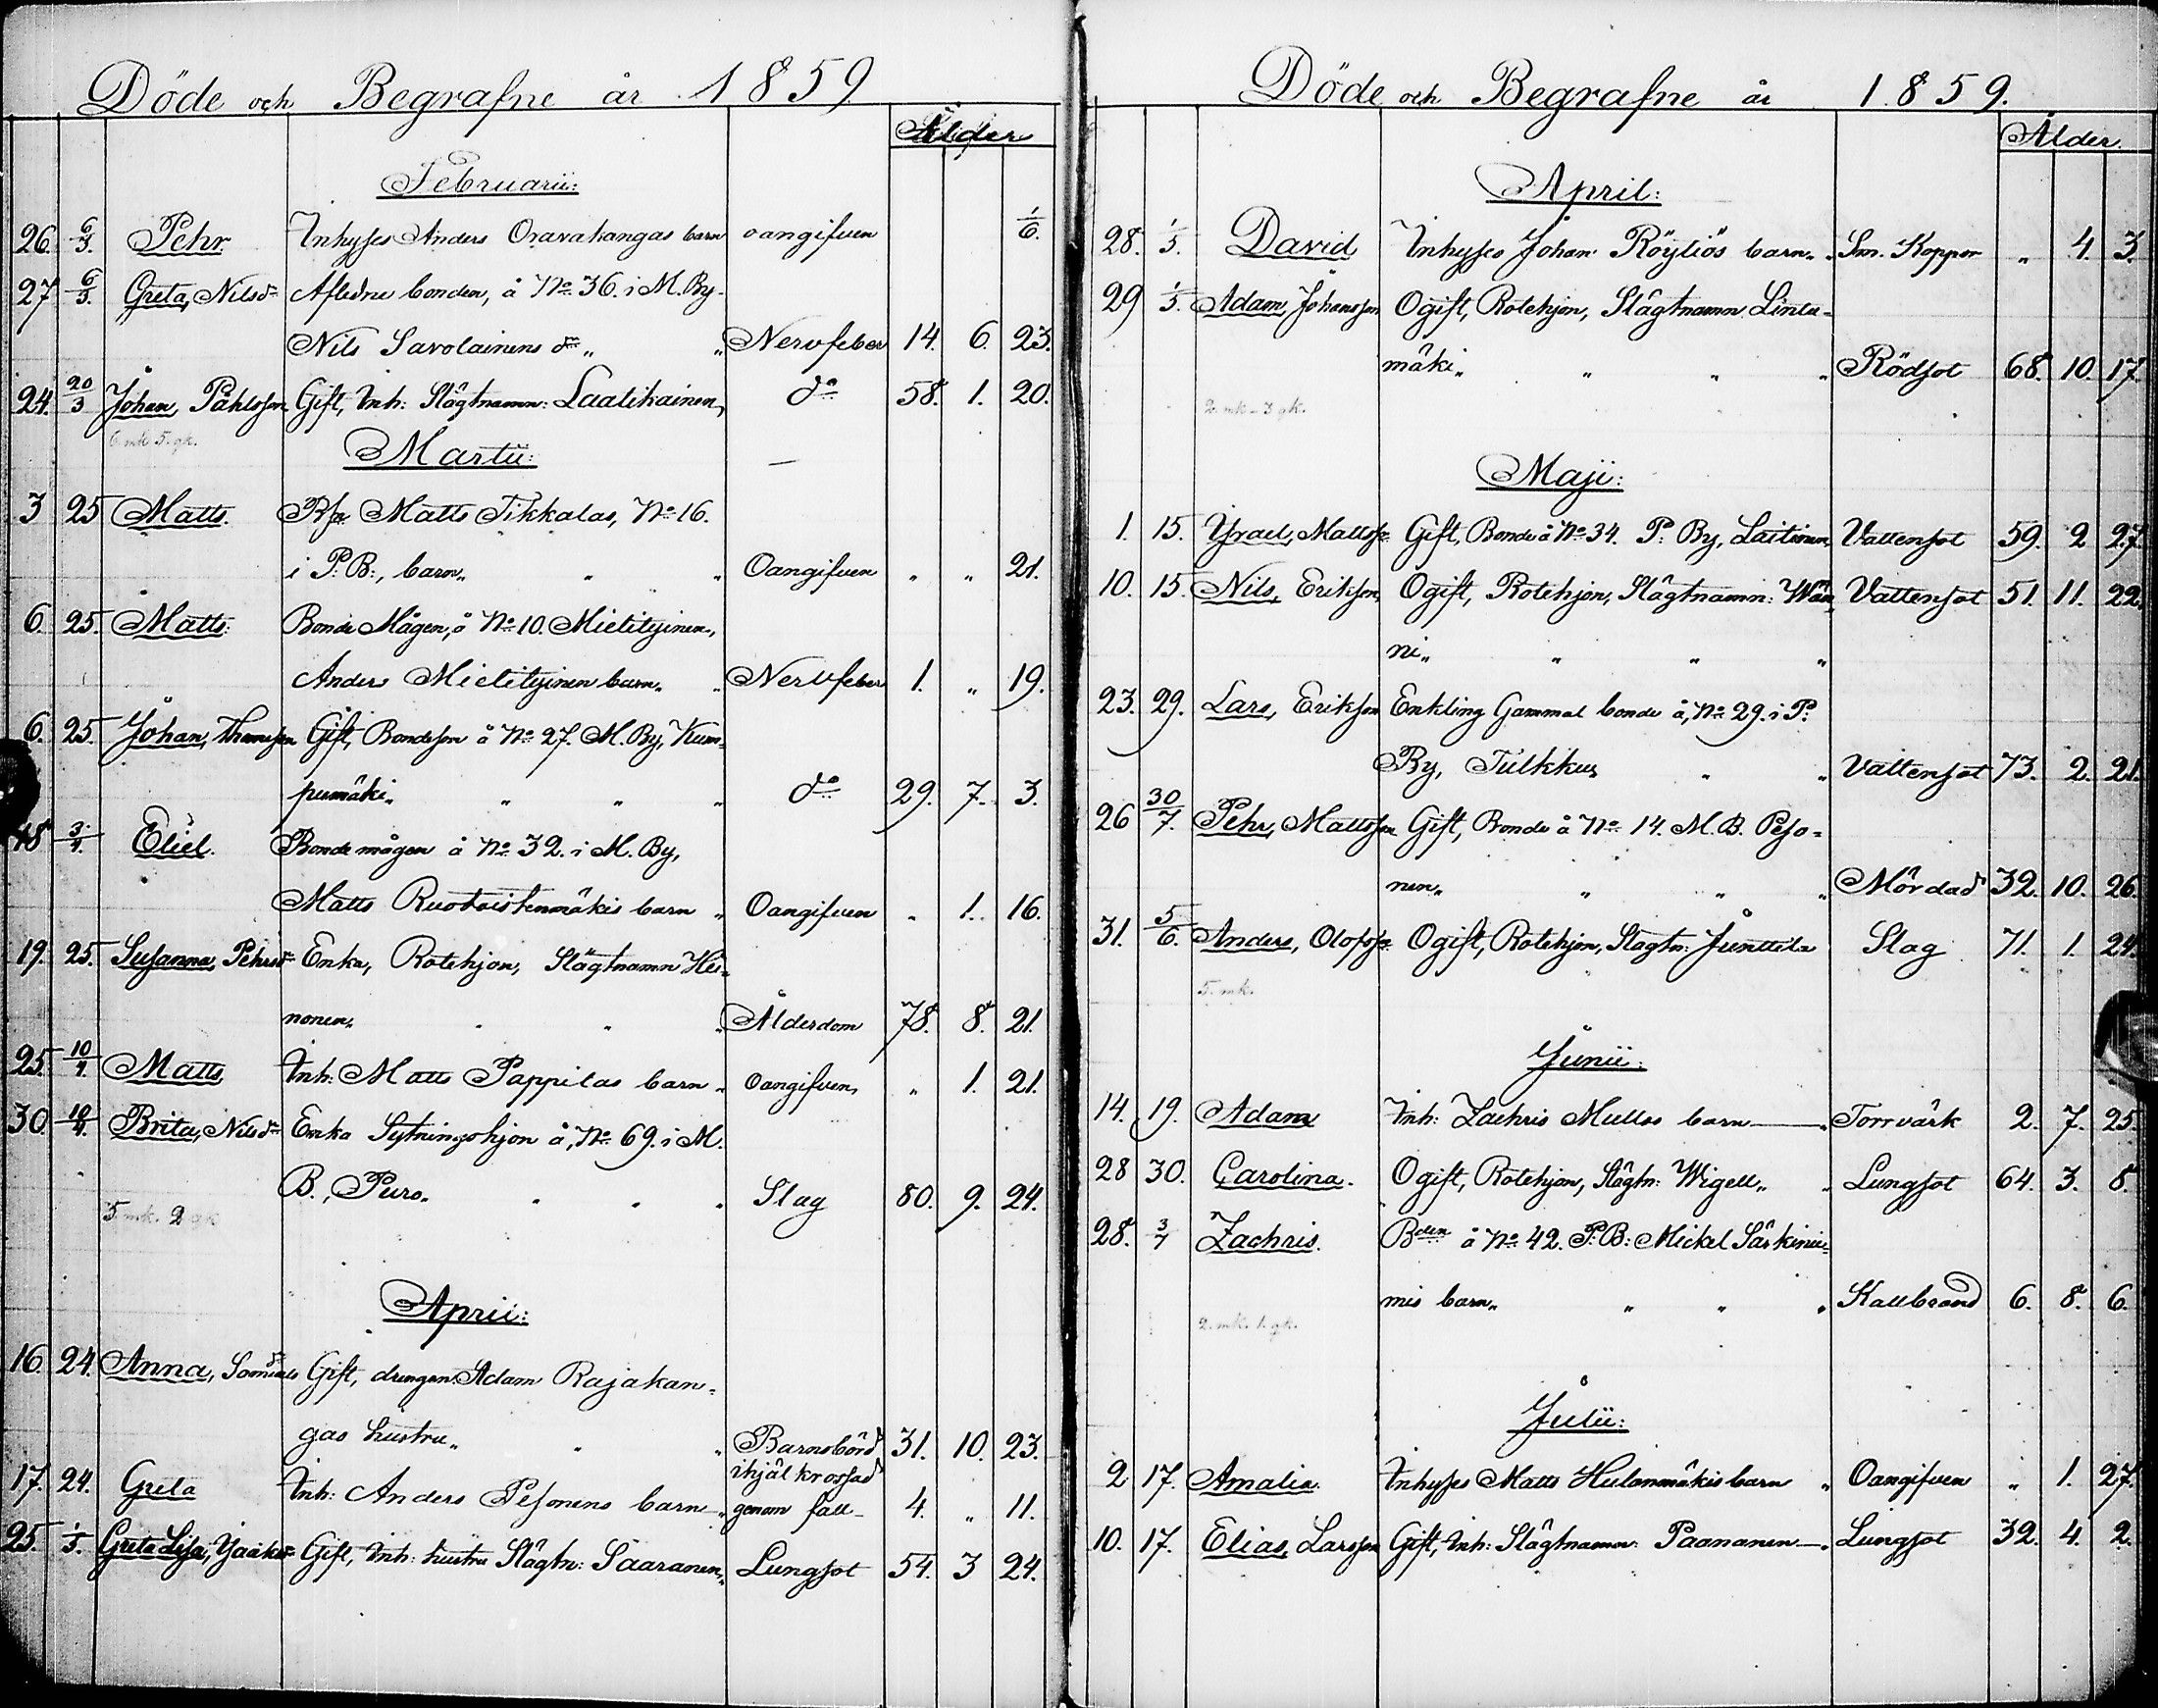 Döde och Begrafne år 1859
Ålder
Februarii:
26. 6/3. Pehr Inhyses Anders Oravakangas barn oangifven 1/6.
27 6/3. Greta, Nilsdr Aflidne bonden, å No 36. i M. By.
Nils Savolainens dr „ „ Nervfeber 14. 6. 23.
24. 20/3 Johan, Påhlsson Gift, Inh: Slägtnamn: Laatikainen, do 58. 1. 20.
6 mk 5. qk.
Martii:
3 25 Matts. Matts Tikkalas, No 16.
i P: B:, barn „ „ „ Oangifven „ „ 21.
6. 25. Matts: Bonde Mågen, å No 10. Mielityinen,
Anders Mielityinen barn „ „ Nervfeber 1. „ 19.
6. 25. Johan, Thomsson Gift, Bondeson å No 27. M. By, Kum-
pumäki „ „ „ „ do 29. 7. 3.
18 3/4. Eliel. Bonde mågen å No 32. i M. By,
Matts Ruotoistenmäkis barn „ Oangifven „ 1. 16.
19. 25. Susanna, Pehrsdr Enka, Rotehjon, Slägtnamn Hei-
nonen „ „ „ „ Ålderdom 78. 8. 21.
25. 10/4. Matts Inh: Matts Pappilas barn „ oangifven, „ 1. 21.
30. 10/4. Brita, Nilsdr Enka Sytningshjon å, No 69. i M.
B., Puro „ „ „ „ Slag 80. 9. 24.
5. mk. 2 qk
April:
16. 24. Anna, Gift, drengen Adam Rajakan-
gas hustru „ „ „ Barnsbörd 31. 10. 23.
ihjäl krossad
17. 24. Greta Inh: Anders Pesonens barn „ genom fall 4. „ 11.
25. 1/5. Greta Lisa, Gift, Inh: hustru Slägtn: Saaranen „ Lungsot 54. 3 24.
Döde och Begrafne år 1859.
Ålder.
April:
28. 1/5. David Inhyses Johan Röyliös barn „ „ Sm. Koppor „ 4. 3.
29 1/5. Adam, Johansson Ogift, Rotehjon, Slägtnamn Linta-
mäki „ „ „ „ Rödsot 68. 10. 17.
2. mk - 3 qk.
Maji:
1. 15. Ysrael, Mattss: Gift, Bonde å No 34. P: By, Laitinen, Vattensot 59. 2 27.
10. 15. Nils, Erikson, Ogift, Rotehjon, Slägtnamn: Wän
ni „ „ „ „ Vattensot 51. 11. 22.
23. 29. Lars, Erikson Enkling Gammal bonde å, No 29. i P:
By, Tulkkus „ „ Vattensot 73. 2. 21.
26 30/7. Pehr, Mattsson Gift, Bonde å No 14. M. B. Peso-
nen „ „ „ „ Mördad 32. 10. 26.
31. 5/6. Anders, Olofss: Ogift, Rotehjon, Slägtn: Junttila Slag 71. 1. 24.
5. mk.
Junii:
14. 19. Adam Inh: Zachris Mullos barn „ Torrvärk 2. 7. 25
28 30. Carolina. Ogift, Rotehjon, Slägtn: Wigell „ „ Lungsot 64. 3. 8.
28. 3/7 Zachris. Bden å No 42. P: B: Mickel Särkinie-
mis barn „ „ „ „ Kallbrand 6. 8. 6.
2. mk. 1. qk.
Julii:
2 17. Amalia. Inhyses Matts Hulanmäkis barn „ Oangifven „ 1. 27.
10. 17. Elias, Larsson Gift, Inh: Slägtnamn: Paananen „ Lungsot 32. 4. 2.